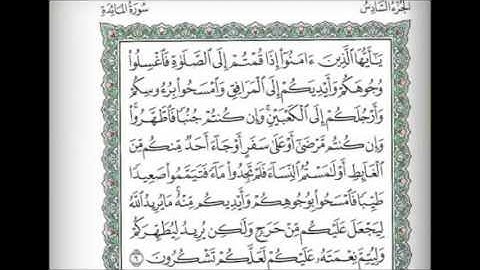 الجزء السادس
سورة المائدة
يَٰٓأَيُّهَا ٱلَّذِينَ ءَامَنُوٓا۟ إِذَا قُمْتُمْ إِلَى ٱلصَّلَوٰةِ فَٱغْسِلُوا۟
وُجُوهَكُمْ وَأَيْدِيَكُمْ إِلَى ٱلْمَرَافِقِ وَٱمْسَحُوا۟ بِرُءُوسِكُمْ
وَأَرْجُلَكُمْ إِلَى ٱلْكَعْبَيْنِ ۚ وَإِن كُنتُمْ جُنُبًا فَٱطَّهَّرُوا۟ ۚ
وَإِن كُنتُم مَّرْضَىٰٓ أَوْ عَلَىٰ سَفَرٍ أَوْ جَآءَ أَحَدٌ مِّنكُم مِّنَ
ٱلْغَآئِطِ أَوْ لَٰمَسْتُمُ ٱلنِّسَآءَ فَلَمْ تَجِدُوا۟ مَآءً فَتَيَمَّمُوا۟ صَعِيدًا
طَيِّبًا فَٱمْسَحُوا۟ بِوُجُوهِكُمْ وَأَيْدِيكُم مِّنْهُ ۚ مَا يُرِيدُ ٱللَّهُ
لِيَجْعَلَ عَلَيْكُم مِّنْ حَرَجٍ وَلَٰكِن يُرِيدُ لِيُطَهِّرَكُمْ
وَلِيُتِمَّ نِعْمَتَهُۥ عَلَيْكُمْ لَعَلَّكُمْ تَشْكُرُونَ ٦